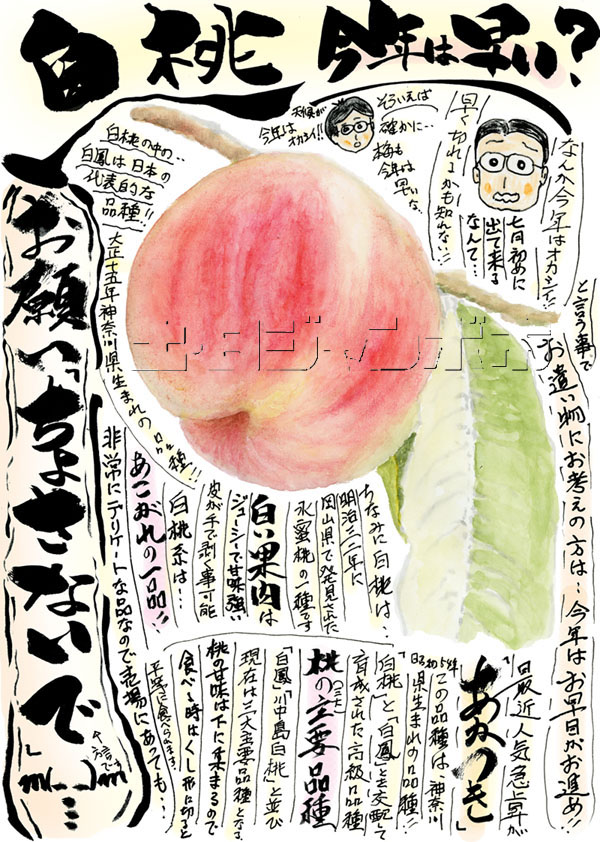 白桃 今年は早い?
なんか今年はオカシイ!!
七月初めに
出て来る
なんて…
早く切れるかも知れない!!
そういえば
確かに…
梅も
今年は
早いな、
天候が
今年は
オカシイ!!
と言う事で
お遣い物にお考えの方は…今年はお早目がお進め!!
白桃の中の…
白鳳は日本の
代表的な
品種!!
大正十五年神奈川県生まれの品種!!
「お願いちょさないで」
↑方言です
m(__)m…
ちなみに白桃は…
明治三二年に
岡山県で発見された
水蜜桃の一種です
白い果肉は
ジューシーで甘味強い
皮が手で剥く事可能
白桃系は!…
あこがれの一品!!
非常にデリケートな品なので売場にあても…
最近人気急上昇が
「あかつき」
昭和54年
この品種は、神奈川
県生まれの品種!!
「白桃」と「白鳳」を交配して
育成された高級品種
桃の三大主要品種
「白鳳」「川中島白桃」と並び
現在は三大主要品種となる
桃の甘味は下に集まるので
食べる時はくし形に切ると
平等に食べられます!